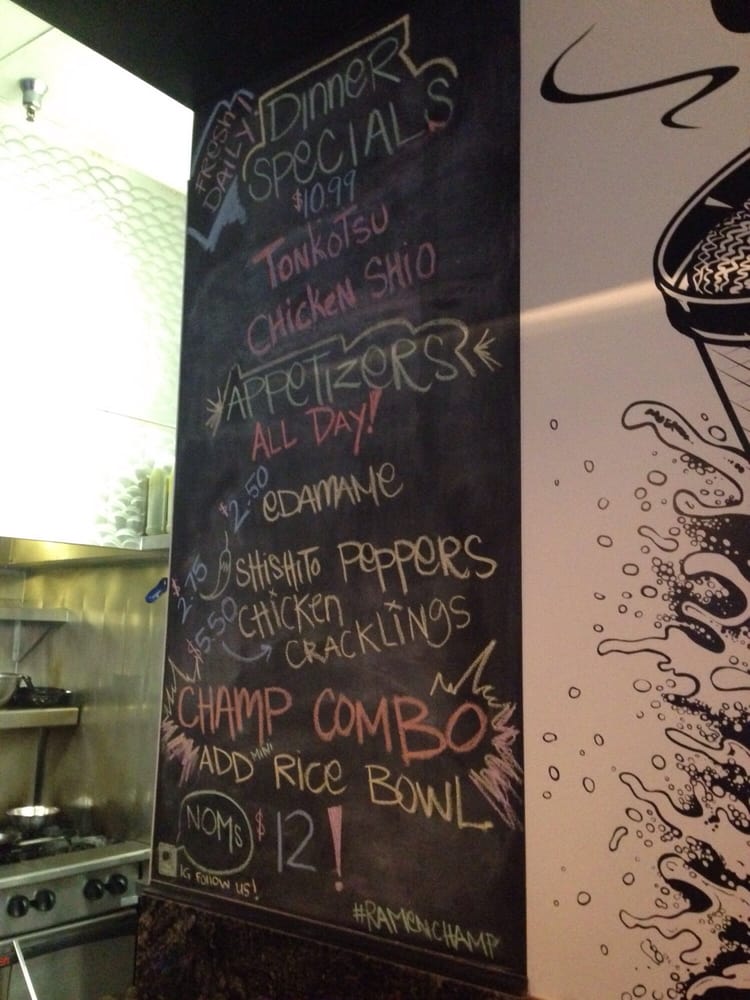 FRESH
DAILY
DINNER
SPECIALS
$10.99
TONKOTSU
CHICKEN SHIO
APPETIZERS
ALL DAY!
$2.50 EDAMAME
$2.75 SHISHITO PEPPERS
$5.50 CHICKEN
CRACKLINGS
CHAMP COMBO
ADD MINI RICE BOWL
NOMS $12!
IG FOLLOW US!
#RAMENCHAMP